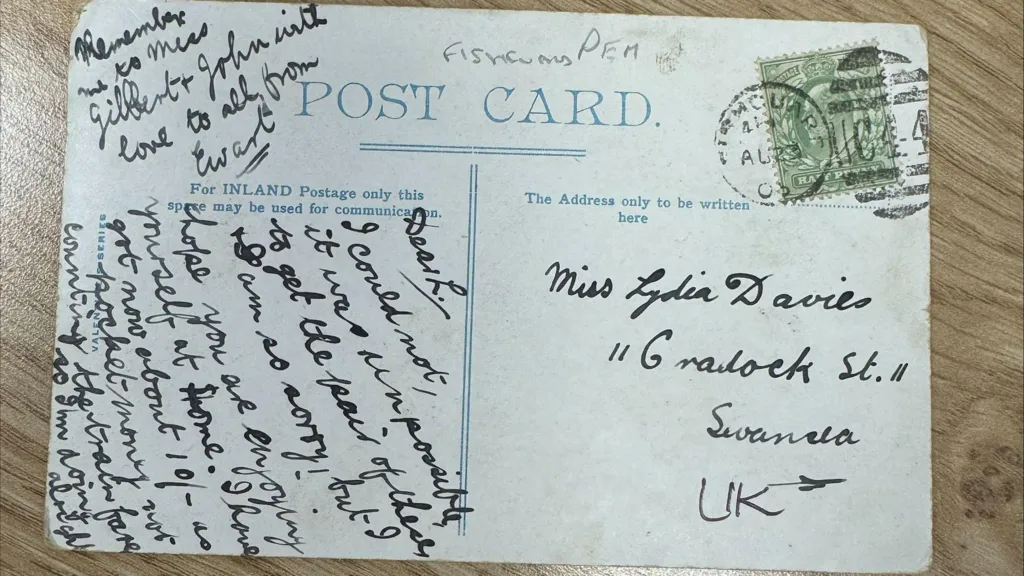 Remember
me to Miss
Gilbert & John with
love to all from
Ewart
FISHGUARD PEM
POST CARD.
For INLAND Postage only this
space may be used for communication.
The Address only to be written
here
Dear L.
I could not,
it was impossible,
to get the pair of these
but I
am so sorry!
I hope you are enjoying
yourself at home. I have
got now about 10/- as
pocket money not
counting the train fare
so I'm doing
alright
Miss Lydia Davies
"Cradock St."
Swansea
UK
AU